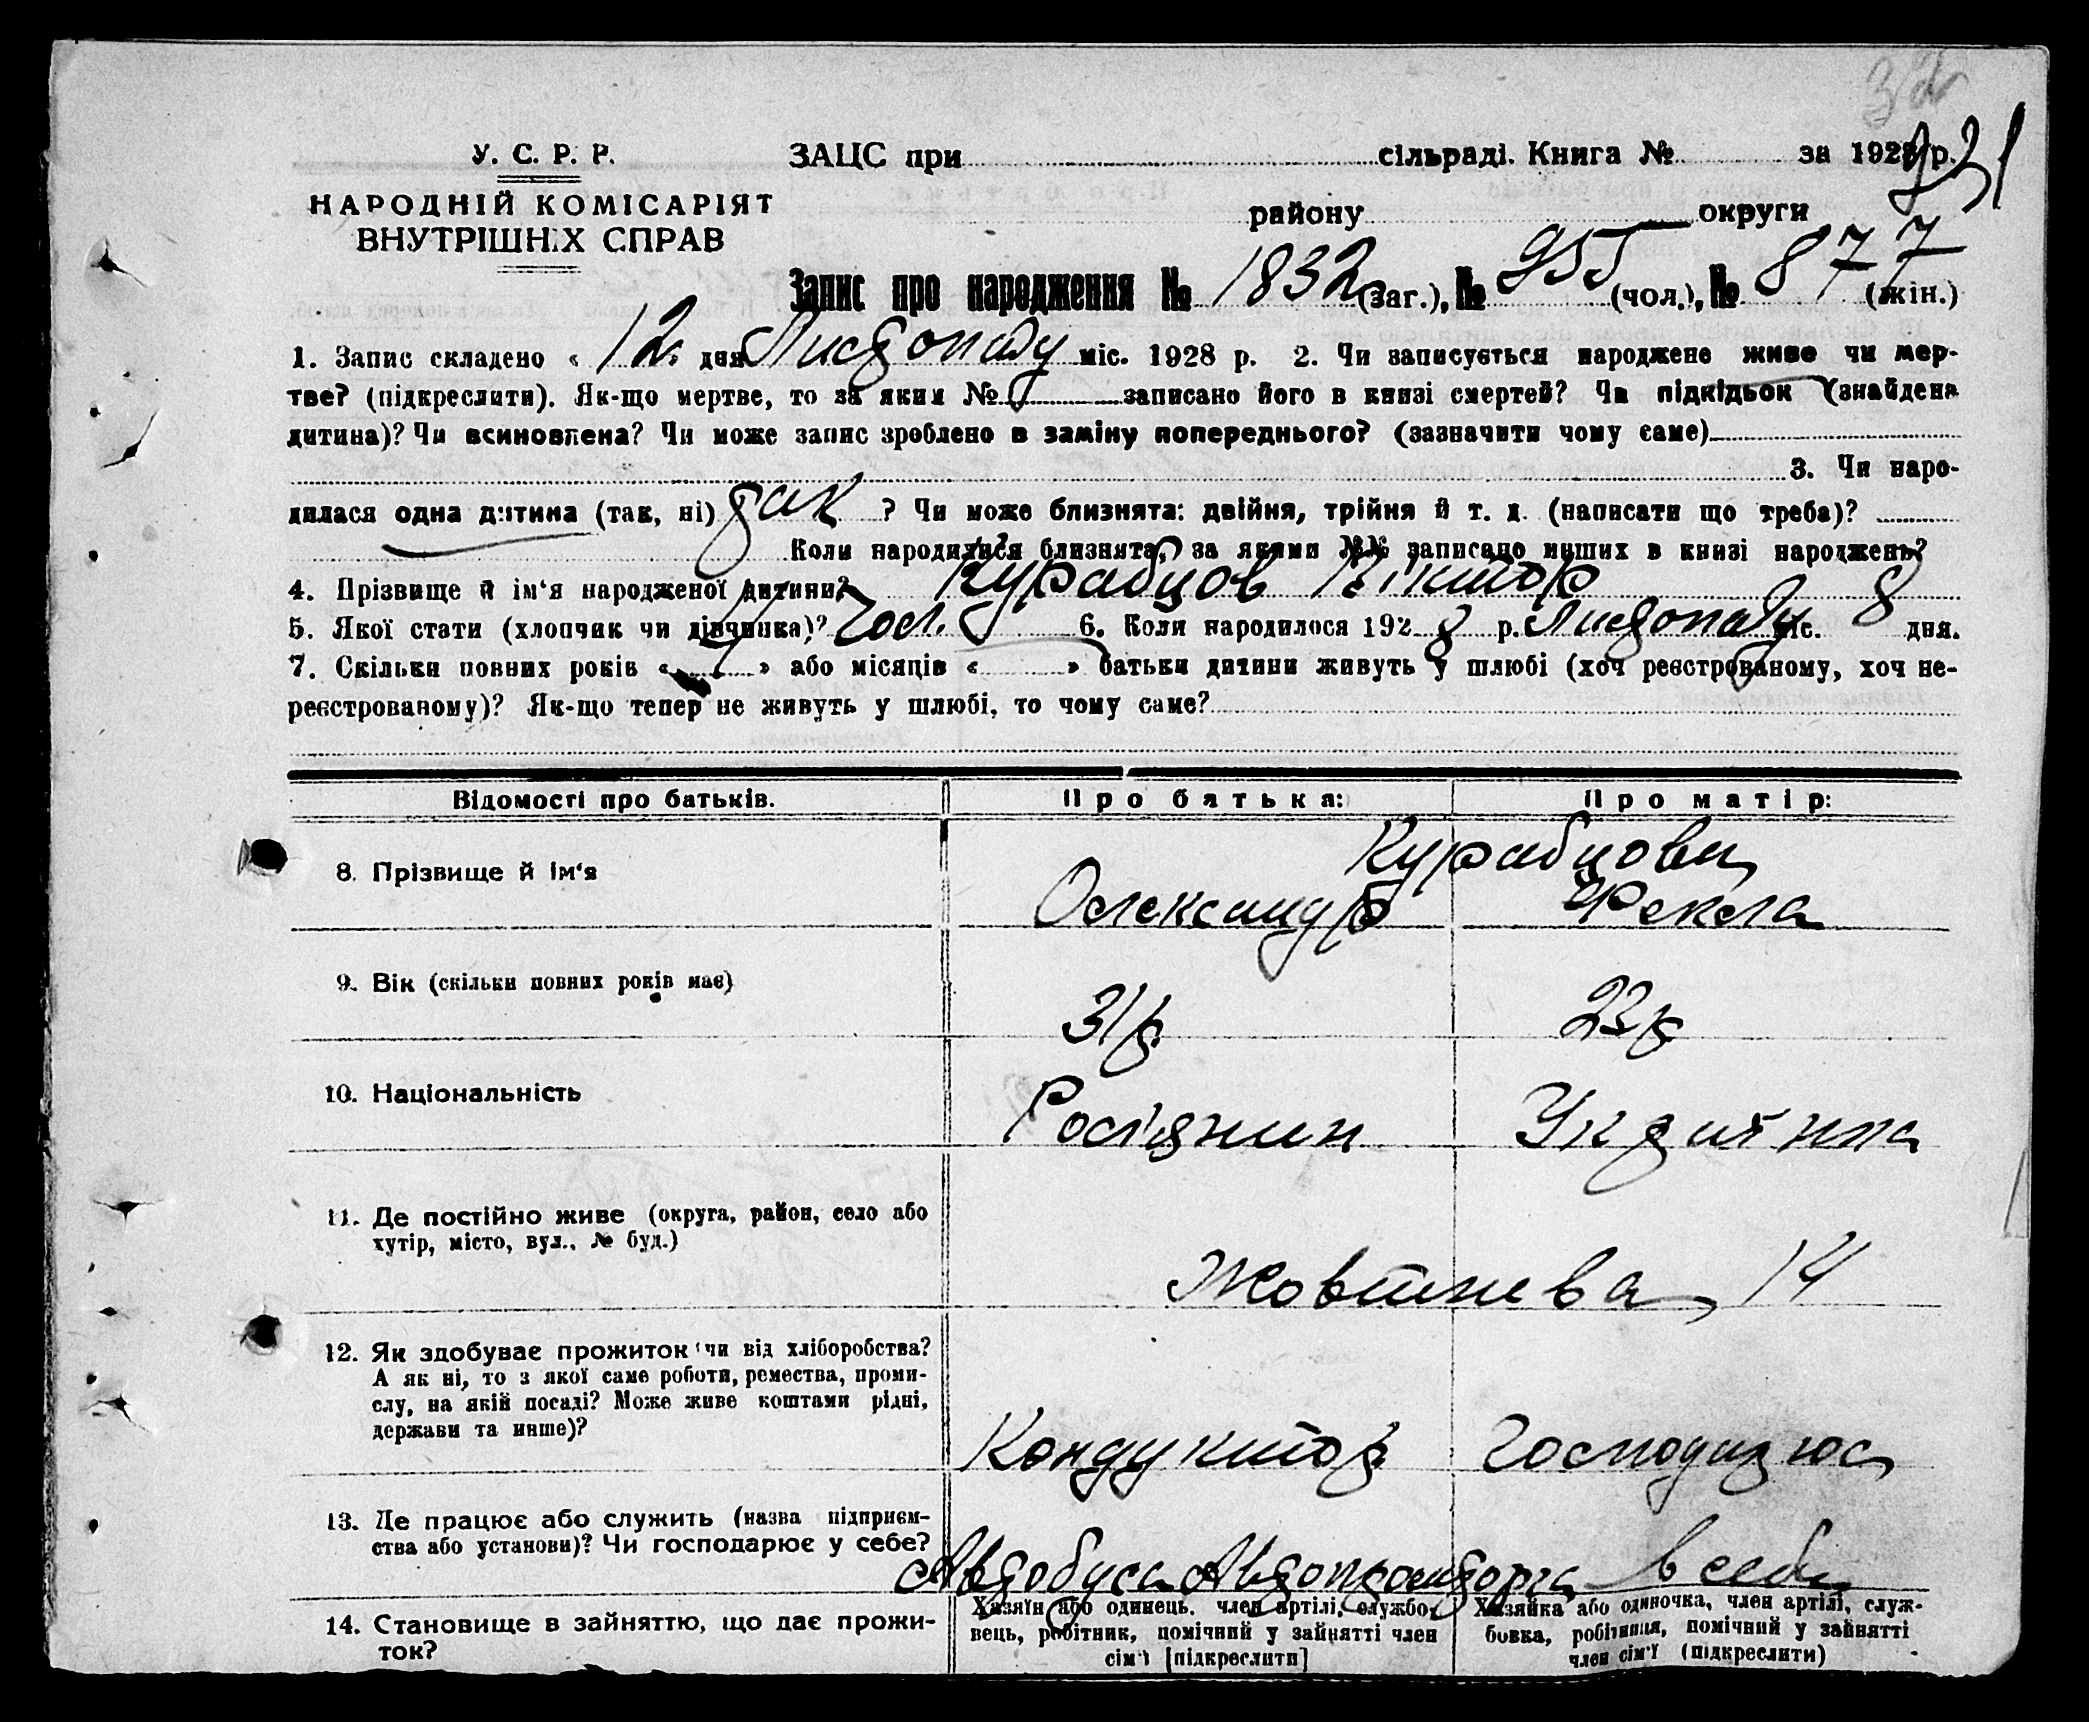 32
231
У. С. Р. Р.
НАРОДНІЙ КОМІСАРІЯТ
ВНУТРІШНІХ СПРАВ
ЗАЦС при сільраді. Книга № за 1928 р.
району округи
Запис про народження № 1832 (заг.), № 955 (чол.), № 877 (жін.)
1. Запис складено « 12 дня Листопаду міс. 1928 р. 2. Чи записується народжене живе чи мер-
тве? (підкреслити). Як-що мертве, то за яким № записано його в книзі смертей? Чи підкідьок (знайдена
дитина)? Чи всиновлена? Чи може запис зроблено в заміну попереднього? (зазначити чому саме)
3. Чи наро-
дилася одна дитина (так, ні) так ? Чи може близнята: двійня, трійня й т. д. (написати що треба)?
Коли народилися близнята, за якими №№ записано инших в книзі народжень?
4. Прізвище й ім‘я народженої дитини? Курабцов Віктор
5. Якої стати (хлопчик чи дівчинка)? Чол. 6. Коли народилося 192 8 р. Листопаду міс. 8 дня.
7. Скільки повних років « » або місяців « » батьки дитини живуть у шлюбі (хоч реєстрованому, хоч не-
реєстрованому)? Як-що тепер не живуть у шлюбі, то чому саме?
Відомості про батьків. Про батька: Про матір:
Курабцови
8. Прізвище й ім‘я Олександр Фекла
9. Вік (скільки повних років має) 31 р. 23 р.
10. Національність Росіянин Українка
11. Де постійно живе (округа, район, село або
хутір, місто, вул., № буд.)
Жовтнева 14
12. Як здобуває прожиток (чи від хліборобства?
А як ні, то з якої саме роботи, ремества, проми-
слу, на якій посаді? Може живе коштами рідні,
держави та инше)?
Кондуктор Господарює
13. Де працює або служить (назва підприєм-
ства або установи)? Чи господарює у себе?
Автобуса Автопромторга в себе
14. Становище в зайняттю, що дає прожи-
ток?
Хазяїн або одинець, член артілі, службо-
вець, робітник, помічний у зайнятті член
сім‘ї [підкреслити]
Хазяйка або одиночка, член артілі, служ-
бовка, робітниця, помічний у зайнятті
член сім‘ї (підкреслити)